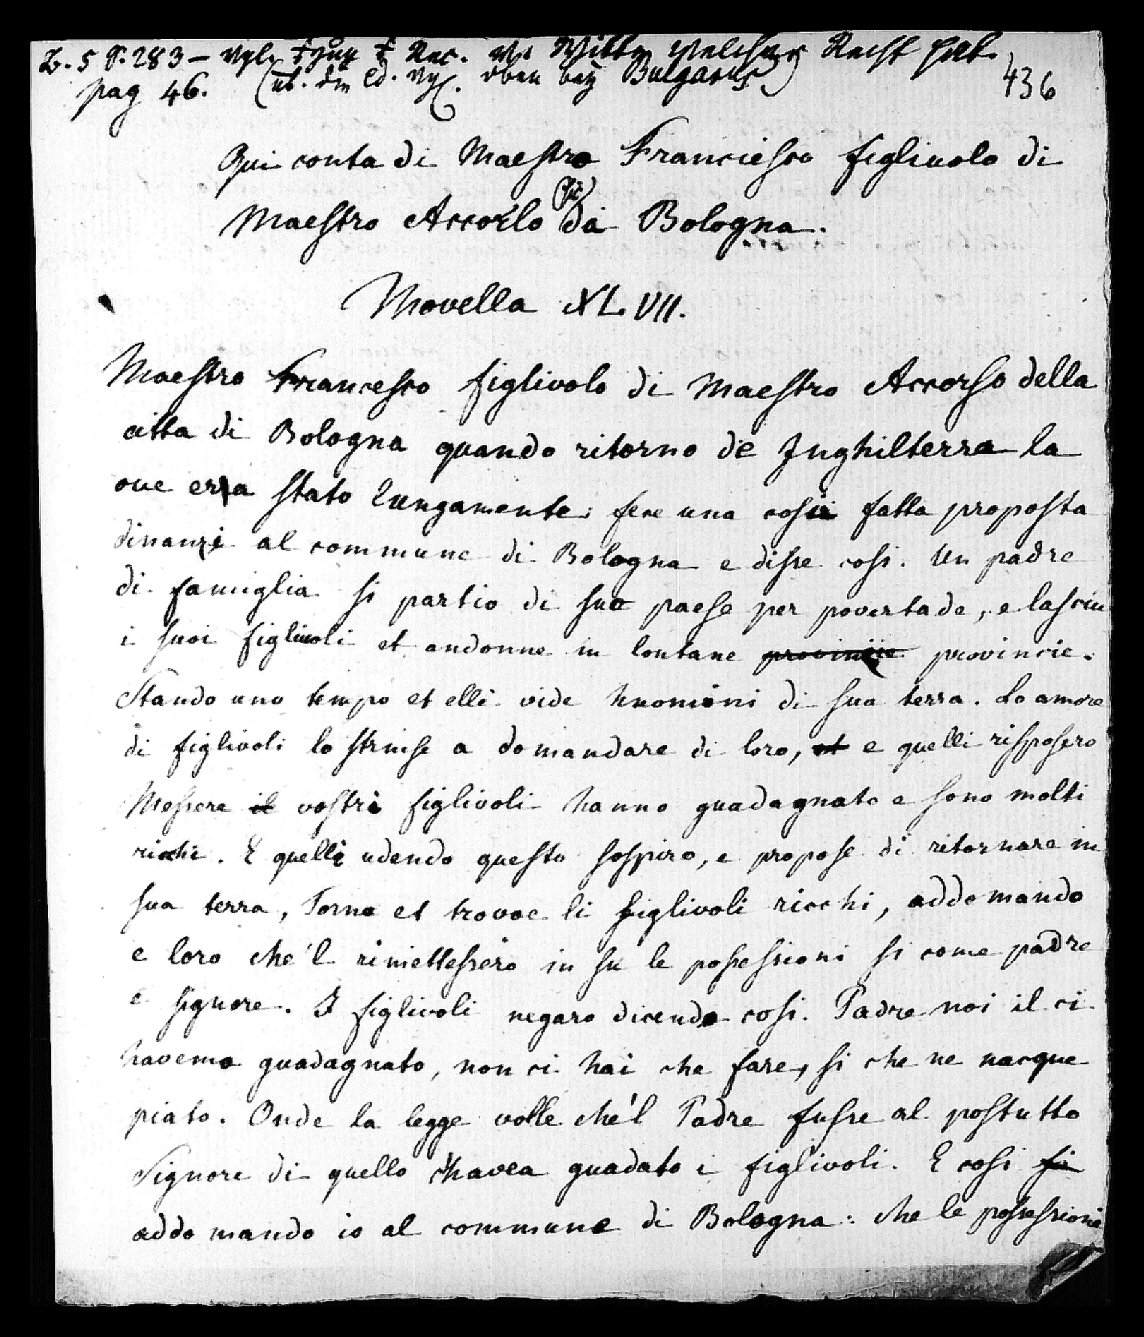 Z. 5 S. 283 – Vgl.
pag 46. oben bey Bulgarus.)
436
Qui conta di Maestro Franciesco figlivolo di
(sic)
Maestro Accorso da Bologna.
Novella XLVII.
Maestro Francesco figlivolo di Maestro Accorso della
citta di Bologna quando ritorno de Inghilterra la
ove era stato lungamente; fece una cosi fatta proposta
dinanzi al commune di Bologna e disse cosi. Un padre
di famiglia si partio di suo paese per povertade, e lascio
i suoi figlivoli et andonne in lontane provincie provincie.
Stando uno tempo et elli vide huomini di sua terra. Lo amore
di figlivoli lo strinse a domandare di loro, et e quelli risposero
Messere il vostri figlivoli hanno guadagnato e sono molti
ricchi. E quelli udendo questo sospiro, e propose di ritornare in
sua terra, Torno et trovoe li figlivoli ricchi, addomando
e loro che'l rimettessero in su le possessioni si come padre
e signore. I figlivoli negaro dicendo cosi. Padre noi il ci
havemo guadagnato, non ci hai che fare, si che ne nacque
piato. Onde la legge volle che'l Padre fusse al postutto
Signore di quello chavea guadato i figlivoli. E cosi si
addomando io al commune di Bologna: che le possessioni